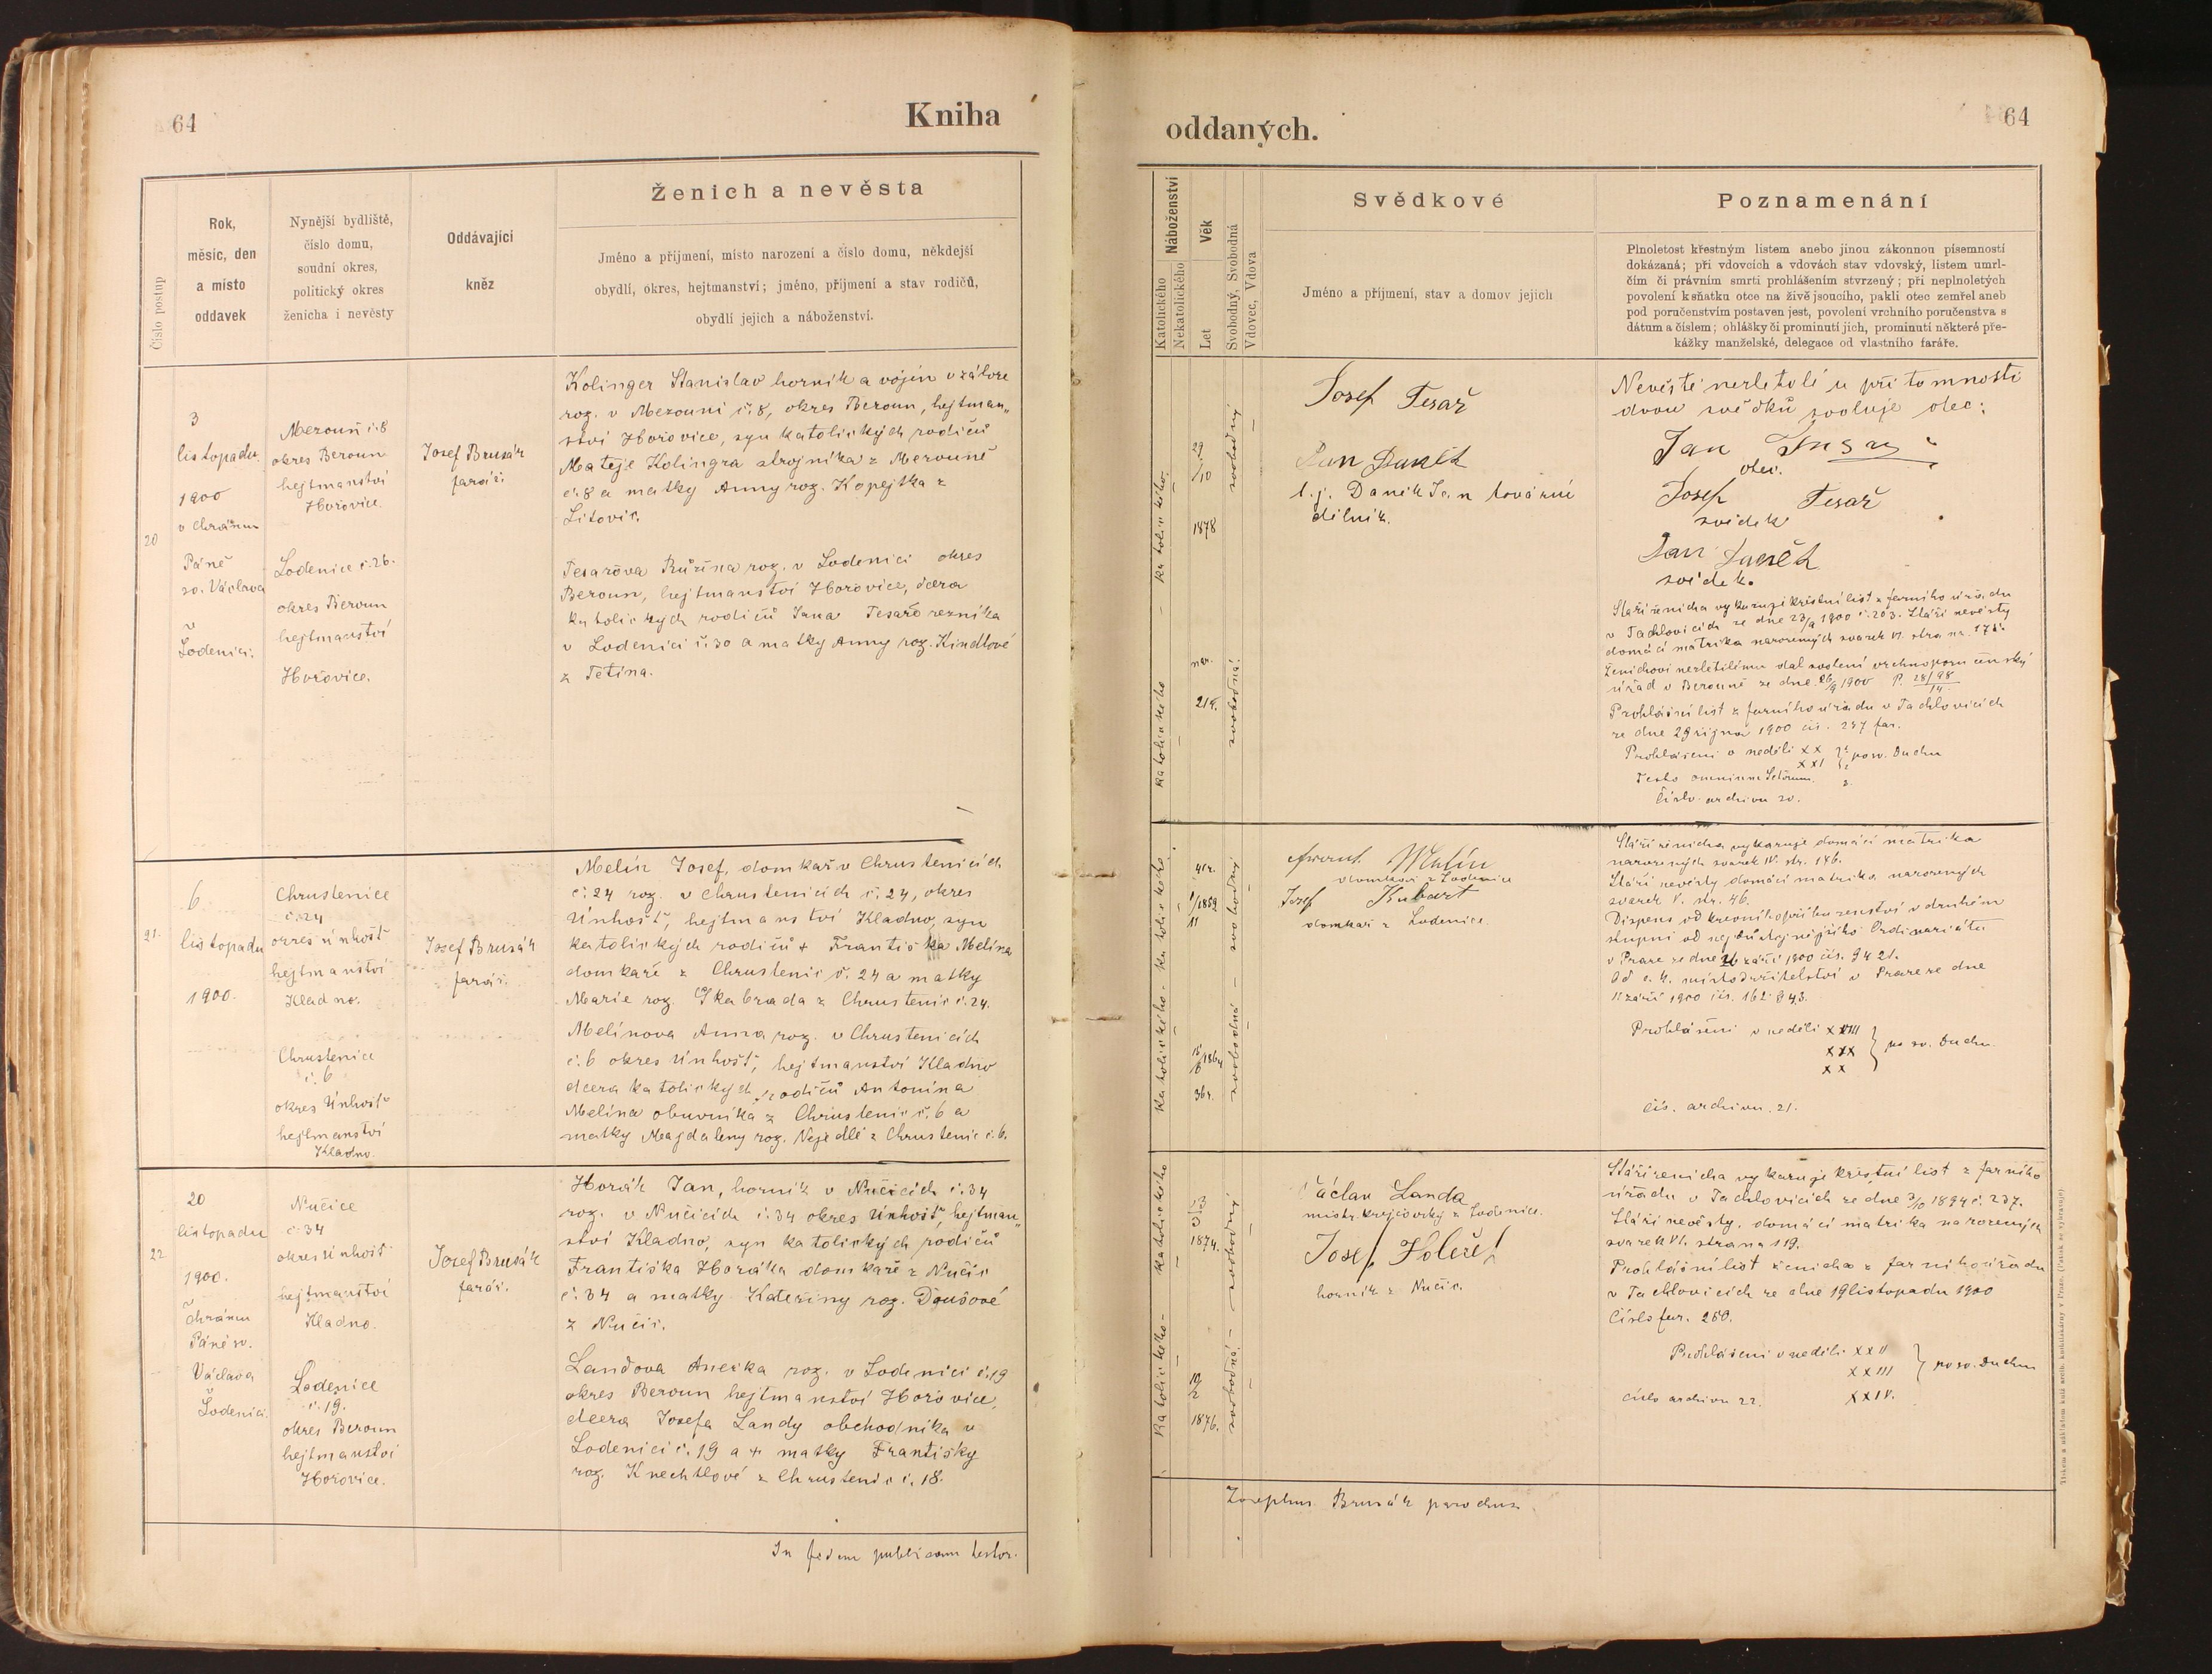 64
Kniha
Číslo postup
Rok,
měsíc, den
a místo
oddavek
Nynější bydliště,
číslo domu,
soudní okres,
politický okres
ženicha i nevěsty
Oddávající
kněz
Ženich a nevěsta
Jméno a přijmení, místo narození a číslo domu, někdejší
obydlí, okres, hejtmanství; jméno, příjmení a stav rodičů,
obydlí jejich a náboženství.
20
3
listopadu
1900
v chrámu
Páně
sv. Václava
v
Loděnici.
Mezouň č. 8
okres Beroun
hejtmanství
Hořovice.
Loděnice č. 26.
okres Beroun
hejtmanství
Hořovice.
Josef Brusák
farář.
Kolinger Stanislav horník a vojín v záloze
roz. v Mezouni č. 8, okres Beroun, hejtman„
ství Hořovice, syn katolických rodičů
Matěje Kolingra strojníka z Mezouně
č. 8 a matky Anny roz. Kopejtka z
Litovic.
Tesařova Růžina roz. v Loděnici okres
Beroun, hejtmanství Hořovice, dcera
katolických rodičů Jana Tesaře řezníka
v Loděnici č. 30 a matky Anny roz. Kindlové
z Tetína.
21.
6
listopadu
1900.
Chrustenice
č. 24
okres Únhošť
hejtmanství
Kladno.
Chrustenice
č. 6
okres Únhošť
hejtmanství
Kladno.
Josef Brusák
farář.
Melín Josef, domkař v Chrustenicích
č. 24 roz. v Chrustenicích č. 24, okres
Únhošť, hejtmanství Kladno, syn
katolických rodičů + Františka Melína
domkaře z Chrustenic č. 24 a matky
Marie roz. Škabrada z Chrustenic č. 24.
Melínova Anna roz. v Chrustenicích
č. 6 okres Únhošť, hejtmanství Kladno
dcera katolických rodičů Antonína
Melína obuvníka z Chrustenic č. 6 a
matky Magdaleny roz. Nejedlé z Chrustenic č. 6.
22
20
listopadu
1900.
Chrámu
Páně sv.
Václava
v
Loděnici.
Nučice
č. 34
okres Únhošť
hejtmanství
Kladno.
Loděnice
č. 19.
okres Beroun
hejtmanství
Hořovice.
Josef Brusák
farář.
Horák Jan, horník v Nučicích č. 34
roz. v Nučicích č. 34 okres Únhošť, hejtman„
ství Kladno, syn katolických rodičů
Františka Horáka domkaře z Nučic
č. 34 a matky Kateřiny roz. Doušové
z Nučic.
Landova Anežka roz. v Loděnici č. 19
okres Beroun hejtmanství Hořovice,
dcera Josefa Landy obchodníka v
Loděnici č. 19 a + matky Františky
roz. Knechtlové z Chrustenic č. 18.
In fidem publicam testor.
oddaných.
64
Náboženství
Katolického
Nekatolického
Věk
Let
Svobodný, Svobodná
Vdovec, Vdova
Svědkové
Jméno a příjmení, stav a domov jejich
Poznamenání
Plnoletost křestným listem anebo jinou zákonnou písemností
dokázaná; při vdovcích a vdovách stav vdovský, listem umrl-
čím či právním smrti prohlášením stvrzený; při neplnoletých
povolení k sňatku otce na živě jsoucího, pakli otec zemřel aneb
pod poručenstvím postaven jest, povolení vrchního poručenstva s
dátum a číslem; ohlášky či prominutí jich, prominutí některé pře-
kážky manželské, delegace od vlastního faráře.
katolického - katolického.
29
/10
1878
nar.
21 r.
svobodný
svobodná.
Josef Tesař
Jan Daněk
t. j. Daněk Jan tovární
dělník.
Nevěstě nezletilé u přítomnosti
dvou svědků svoluje otec:
Jan Tesař
otec.
Josef Tesař
svědek
Jan Daněk
svědek.
Stáří ženicha vykazuje křestní list z farního úřadu
v Tachlovicích ze dne 23/9 1900 č. 203. Stáří nevěsty
domácí matrika narozených svazek VI. strana 178.
Ženichovi nezletilému dal svolení vrchnoporučenský
úřad v Berouně ze dne 26/9 1900 P. 28/98
14
Prohlášní list z farního úřadu v Tachlovicích
ze dne 29 října 1900 čís. 247 far.
Prohlášeni v neděli XX
XXI
po sv. Duchu
Festo omnium Sctorum.
Číslo archivu 20.
katolického - katolického
41 r.
1/1859
11
15/1864
6
36 r.
svobodná - svobodný
Melín
domkař z Loděnice
Josef Kubart
domkař z Loděnice.
Stáří ženicha vykazuje domácí matrika
narozených svazek IV. str. 146.
Stáří nevěsty domácí matrika narozených
svazek V. str. 46.
Dispens od krevního příbuzenství v druhém
stupni od nejdůstojnějšího Ordinariátu
v Praze ze dne 26 září 1900 čís. 9421.
Od c. k. místodržitelství v Praze ze dne
11 září 1900 čís. 162843.
Prohlášeni v neděli XVIII
XIX
XX
po sv. Duchu.
čís. archivu. 21.
katolického - katolického
13
3
1874.
10
2
1876.
svobodná. - svobodný
Václav Landa
mistr krejčovský z Loděnice.
Josef Holeček
horník z Nučic.
Stáří ženicha vykazuje křestní list z farního
úřadu v Tachlovicích ze dne 3/10 1894 č. 237.
Stáří nevěsty, domácí matrika narozených
svazek VI. strana 119.
Prohlášní list ženicha z farního úřadu
v Tachlovicích ze dne 19 listopadu 1900
Číslo far. 280.
Prohlášeni v neděli XXII
XXIII
XXIV.
po sv. Duchu
číslo archivu 22.
Josephus Brusák parochus.
Tiskem a nákladem kníž. arcib. knihtiskárny v Praze. (Patisk se vyhrazuje).